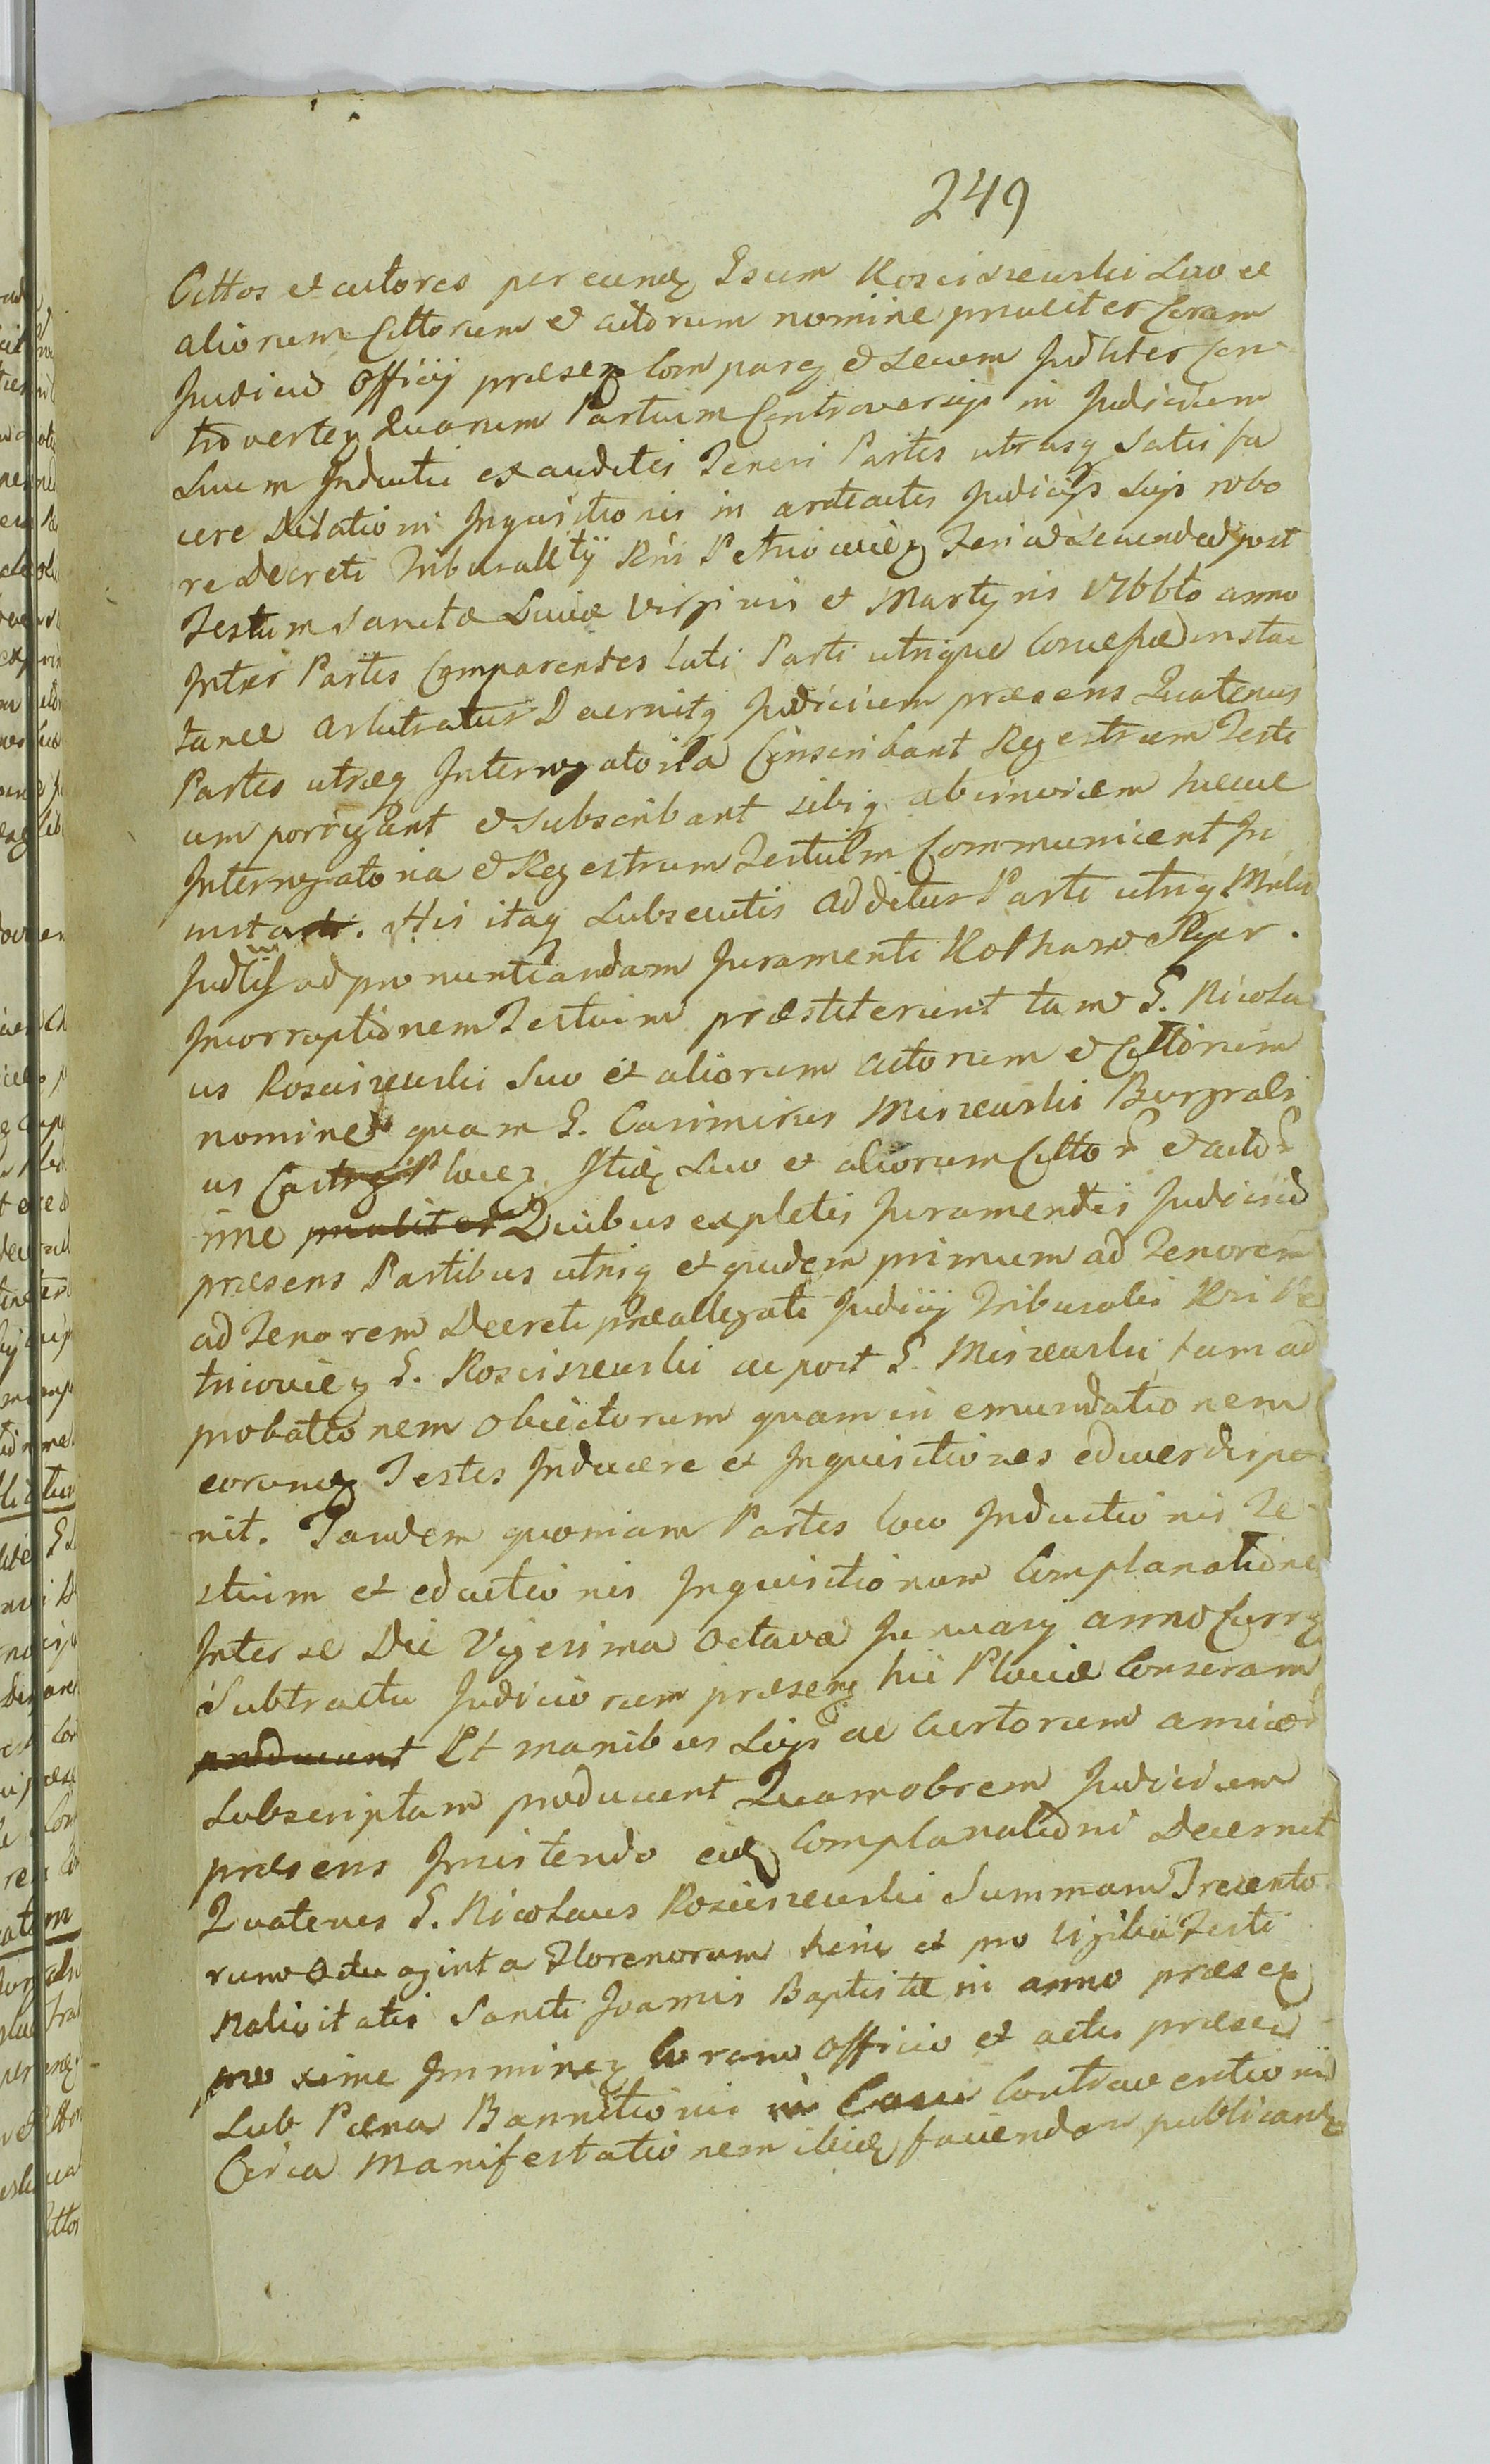 249
Cittos et actores per eund Gsum Rosciszewski Suo et
aliorum Cittorum et actorum nomine prnaliter Coram
Judicio Officy præsenz Comparez et Secum Judliter Con
trovertez Quorum Partium Controversijs in Judicium
Suum Inductis exauditis Teneri Partes utrasq Satisfa
cere Dilationi Inquisitionis in arctactis Judicijs Sijs robo
re Decreti Tribunallty Rni Petriovicz Feria Secunda post
Festum Sanctæ Luciæ Virginis et Martyris 1766to anno
Inter Partes Comparentes lati Parti utrique Concessæ instan
tanee arbitratur Decernitq Judicium præsens Quatenus
Partes utræq Interrogatoria Conscribant Regestrum Testi
um porrigant et Subscribant sibiq abinvicem hæcce
Interrogatoria et Regestrum Testium Communicent In
instanti. His itaq Subsecutis Additus Parti utriq Mnlis
Judlis ad pronuntiandam Juramenti Rotham Super
Incorruptionem Testium præstiterunt tam G. Nicola
us Rosciszewski Suo et aliorum actorum et Cittorum
nomine quam G. Casimirus Miszewski Burgrabi
us Castrz Plocz Itid Suo et aliorum Citto et acto
nine prnaliter Quibus expletis Juramentis Judiciu
præsens Partibus utriq et quidem primum ad Tenorem
ad Tenorem Decreti præallegati Judicij Tribunalis Rni Pe
triovicz G. Rosciszewski ac post G. Miszewski tam ad
probationem Obiectorum quam in emundationem
eorund Testes Inducere et Inquisitiones educer dispo
nit. Tandem quoniam Partes loco Inductionis Te
stium et eductionis Inquisitionum Complanatione
Inter se Die Vigesima Octava Januarij anno Currz
Subtractu Judiciorum præsenz hic Plociæ Conseram
producunt Et manibus Sijs ac Certorum amico
Subscriptam producunt Quamobrem Judicium
præsens Insistendo eid Complanationi Decernit
Quatenus G. Nicolaus Rosciszewski Summam Trecento
rum Octuaginta Florenorum hinc et pro Vigilia Festi
Nativitatis Sancti Joannis Baptistæ in anno præsez
proxime Imminez Coram Officio et actis præsez
Sub Pæna Bannitionis in Casu Contraventionis
Circa Manifestationem ibid faciendam publicand